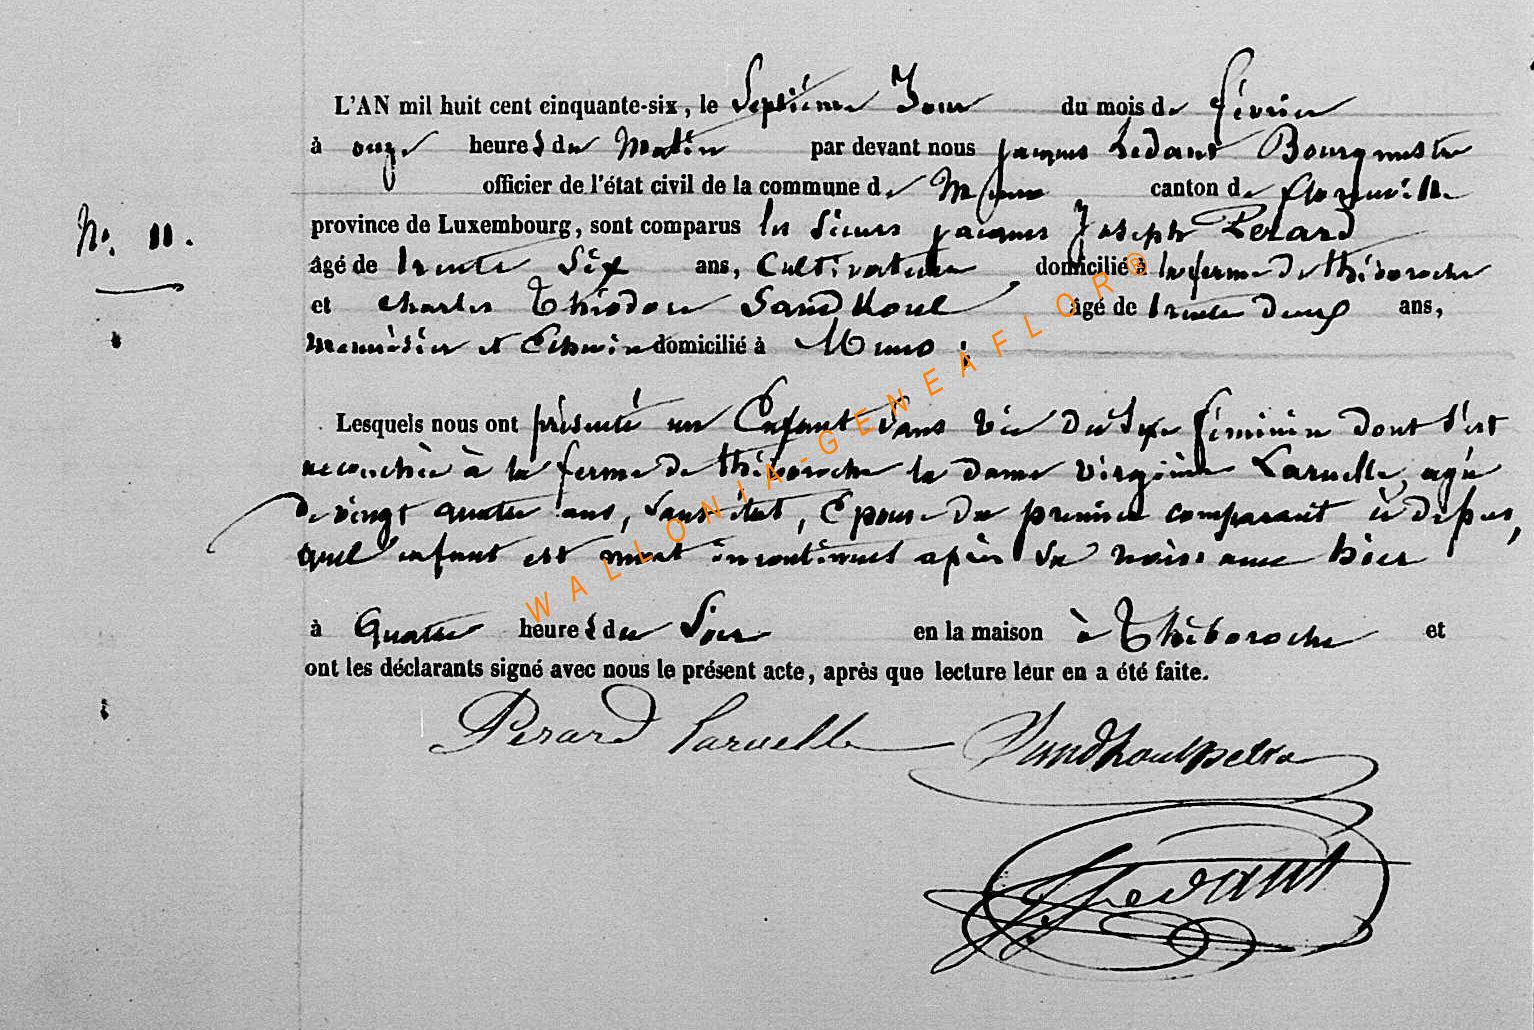 L'AN mil huit cent cinquante-six, le Septième Jour du mois de février
N°. 11.
à onze heures du Matin par devant nous jacques Ledant Bourgmestre
officier de l'état civil de la commune de Muno canton de florenville
province de Luxembourg, sont comparus les Sieurs jacques Joseph Perard
âgé de trente Six ans, Cultivateur domicilié à la ferme de thiboroche
et charles Théodore Sandhoul âgé de trente deux ans,
Menuisier et domicilié à Muno ;
Lesquels nous ont présenté un Enfant Sans Vie du Sexe féminin dont s'est
accouchée à la ferme de thiboroche la dame Virginie Laruelle, agée
de vingt quatre ans, Sans état, Epouse du premier comparant
quel enfant est mort incontinent après sa naissance hier
à Quatre heures du Soir en la maison à Thiboroche et
ont les déclarants signé avec nous le présent acte, après que lecture leur en a été faite.
Perard Laruelle Sandhoul
JLedant
WALLONIA-GENEAFLOR®